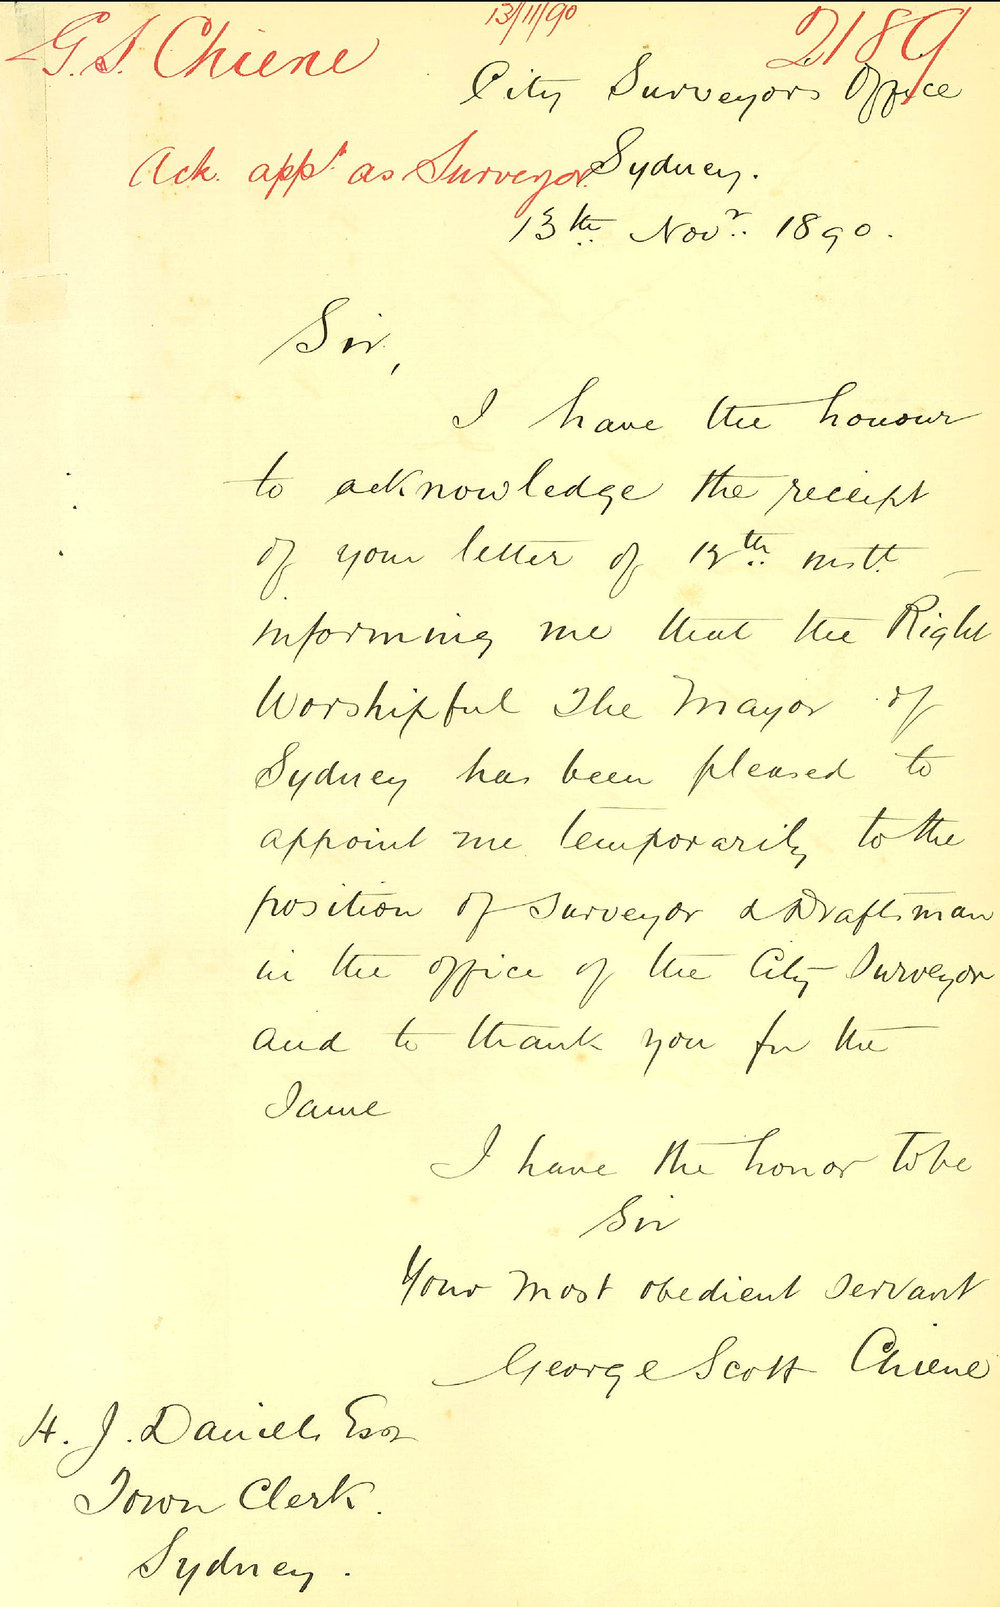 13/11/90
G. S. Chiene
2189
City Surveyors Office
Ack. appt. as Surveyor.
Sydney.
13th Novr. 1890.
Sir,
I have the honour
to acknowledge the receipt
of your letter of 12th instt
informing me that the Right
Worshipful The Mayor of
Sydney has been pleased to
appoint me temporarily to the
position of Surveyor & Draftsman
in the office of the City Surveyor
and to thank you for the
Same
I have the honor to be
Sir
Your most obedient servant
George Scott Chiene
H. J. Daniels Esqr
Town Clerk.
Sydney.